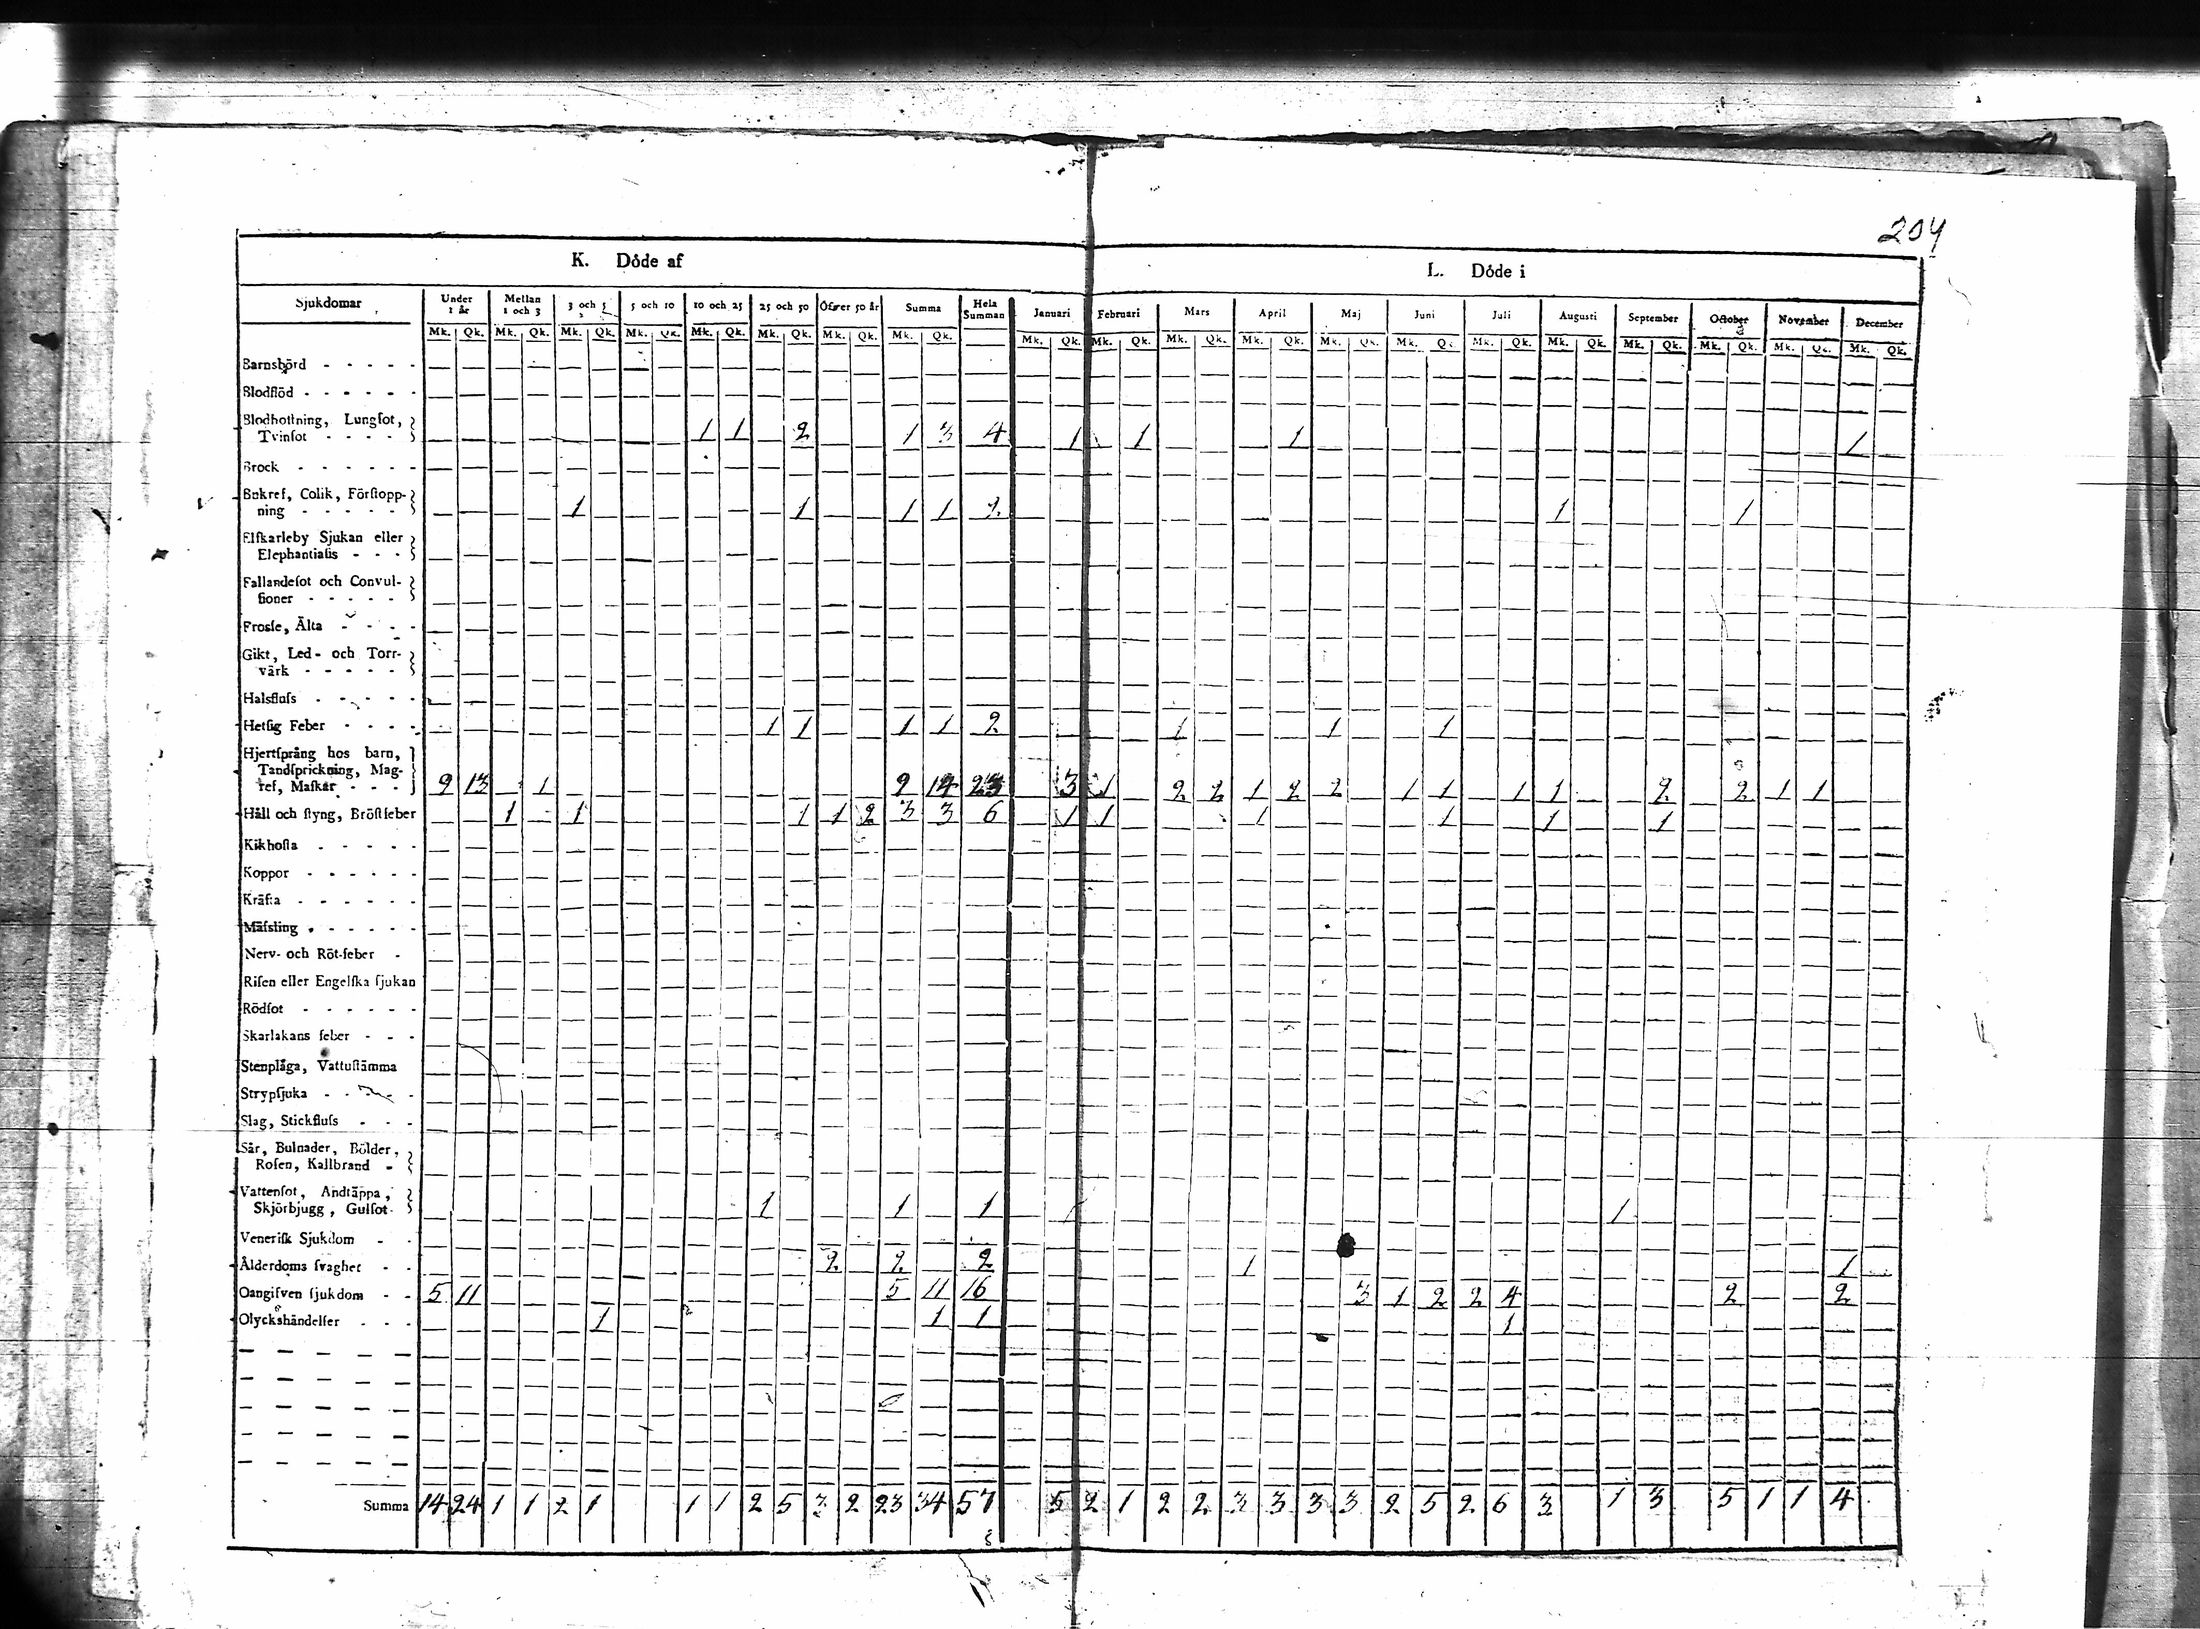 204
K. Döde af
L. Döde i
Sjukdomar | Under 1 år | Mellan 1 och 3 | 3 och 5 | 5 och 10 | 10 och 25 | 25 och 50 | Öfver 50 år | Summa | Hela Summan | Januari | Februari | Mars | April | Maj | Juni | Juli | Augusti | September | October | November | December
Mk. Qk. Mk. Qk. Mk. Qk. Mk. Qk. Mk. Qk. Mk. Qk. Mk. Qk. Mk. Qk. Mk. Qk. Mk. Qk. Mk. Qk. Mk. Qk. Mk. Qk. Mk. Qk. Mk. Qk. Mk. Qk. Mk. Qk. Mk. Qk. Mk. Qk. Mk. Qk.
Barnsbörd - - - - -
Blodflöd - - - - - -
Blodhoſtning, Lungſot,
Tvinſot - - - - 1 1 2 1 3 4 1 1 1 1
Brock - - - - - -
Bukref, Colik, Förſtopp-
ning - - - - - 1 1 1 1 2 1 1
Elfkarleby Sjukan eller
Elephantiaſis - - -
Fallandeſot och Convul-
ſioner - - - - -
Frosſe, Älta - - - -
Gikt, Led- och Torr-
värk - - - - -
Halsfluſs - - - - -
Hetſig Feber - - - - 1 1 1 1 2 1 1 1
Hjertſprång hos barn,
Tandſprickning, Mag-
ref, Maſkar - - - 9 13 1 9 14 23 3 1 2 2 1 2 2 1 1 1 1 2 2 1 1
Håll och ſtyng, Bröſtfeber 1 1 1 1 2 3 3 6 1 1 1 1 1 1
Kikhoſta - - - - -
Koppor - - - - - -
Kräfta - - - - - -
Mäſsling - - - - - -
Nerv- och Röt-feber -
Riſen eller Engelſka ſjukan
Rödſot - - - - - -
Skarlakans feber - - -
Stenplåga, Vattuſtämma
Strypſjuka - - - - -
Slag, Stickfluſs - - -
Sår, Bulnader, Bölder,
Roſen, Kallbrand -
Vattenſot, Andtäppa,
Skjörbjugg, Gulſot- 1 1 1 1
Veneriſk Sjukdom - -
Ålderdoms ſvaghet - - 2 2 2 1 1
Oangifven ſjukdom - - 5 11 5 11 16 3 1 2 2 4 2 2
Olyckshändelſer - - - 1 1 1 1
Summa 14 24 1 1 2 1 1 1 2 5 3 2 23 34 57 5 2 1 2 2 3 3 3 3 2 5 2 6 3 1 3 5 1 1 4